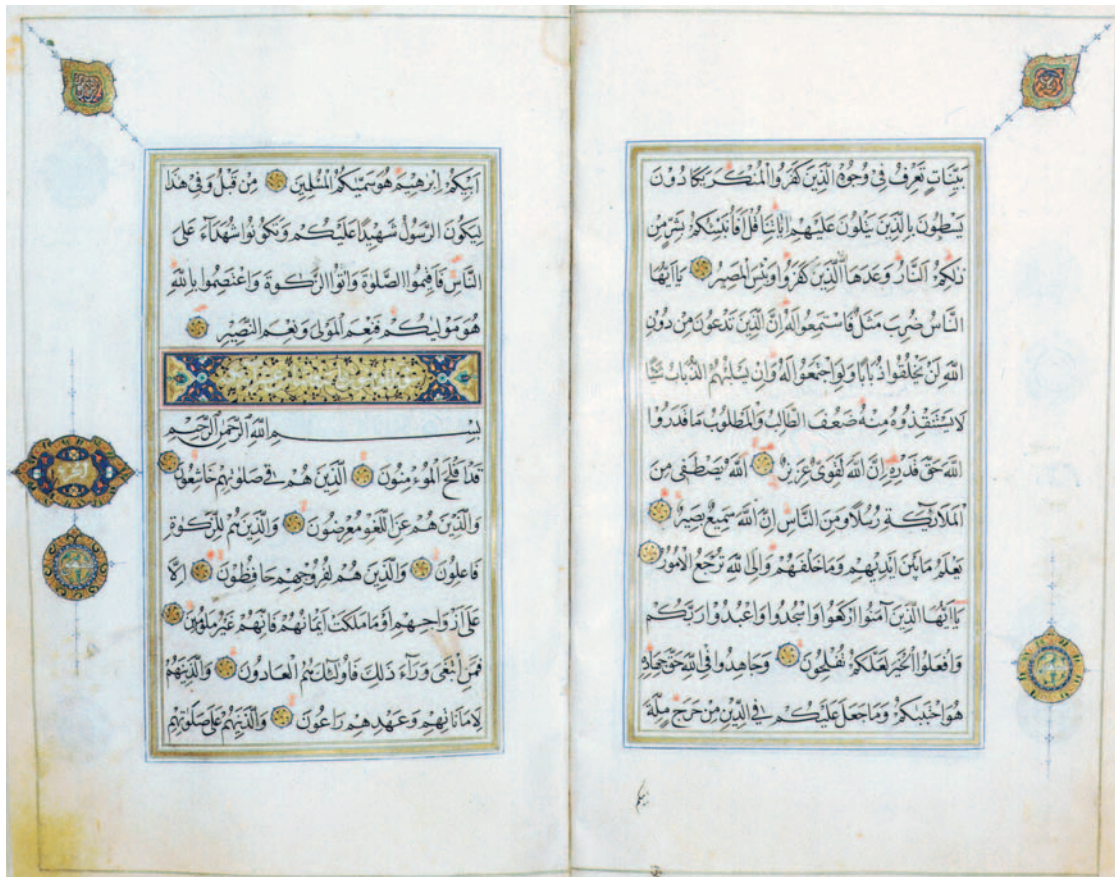 بَيِّنَاتٍ تَعْرِفُ فِى وُجُوهِ الَّذِينَ كَفَرُوا الْمُنْكَرَ يَكَادُونَ
يَسْطُونَ بِالَّذِينَ يَتْلُونَ عَلَيْهِمْ اٰيَاتِنَا قُلْ اَفَاُنَبِّئُكُمْ بِشَرٍّ مِنْ
ذٰلِكُمُ النَّارُ وَعَدَهَا اللهُ الَّذِينَ كَفَرُوا وَبِئْسَ الْمَصِيرُ يَا اَيُّهَا
النَّاسُ ضُرِبَ مَثَلٌ فَاسْتَمِعُوا لَهُ اِنَّ الَّذِينَ تَدْعُونَ مِنْ دُونِ
اللهِ لَنْ يَخْلُقُوا ذُبَابًا وَلَوِ اجْتَمَعُوا لَهُ وَاِنْ يَسْلُبْهُمُ الذُّبَابُ شَيْئًا
لَا يَسْتَنْقِذُوهُ مِنْهُ ضَعُفَ الطَّالِبُ وَالْمَطْلُوبُ مَا قَدَرُوا
اللهَ حَقَّ قَدْرِهِ اِنَّ اللهَ لَقَوِىٌّ عَزِيزٌ اَللهُ يَصْطَفِى مِنَ
الْمَلَائِكَةِ رُسُلًا وَمِنَ النَّاسِ اِنَّ اللهَ سَمِيعٌ بَصِيرٌ
يَعْلَمُ مَا بَيْنَ اَيْدِيهِمْ وَمَا خَلْفَهُمْ وَاِلَى اللهِ تُرْجَعُ الْاُمُورُ
يَا اَيُّهَا الَّذِينَ آمَنُوا ارْكَعُوا وَاسْجُدُوا وَاعْبُدُوا رَبَّكُمْ
وَافْعَلُوا الْخَيْرَ لَعَلَّكُمْ تُفْلِحُونَ وَجَاهِدُوا فِى اللهِ حَقَّ جِهَادِهِ
هُوَ اجْتَبٰيكُمْ وَمَا جَعَلَ عَلَيْكُمْ فِى الدِّينِ مِنْ حَرَجٍ مِلَّةَ
ابيكم
اَبِيكُمْ اِبْرٰهِيمَ هُوَ سَمّٰيكُمُ الْمُسْلِمِينَ مِنْ قَبْلُ وَفِى هٰذَا
لِيَكُونَ الرَّسُولُ شَهِيدًا عَلَيْكُمْ وَتَكُونُوا شُهَدَآءَ عَلَى
النَّاسِ فَاَقِيمُوا الصَّلٰوةَ وَاٰتُوا الزَّكٰوةَ وَاعْتَصِمُوا بِاللهِ
هُوَ مَوْلٰيكُمْ فَنِعْمَ الْمَوْلٰى وَنِعْمَ النَّصِيرُ
بِسْمِ اللهِ الرَّحْمٰنِ الرَّحِيمِ
قَدْ اَفْلَحَ الْمُؤْمِنُونَ اَلَّذِينَ هُمْ فِى صَلٰوتِهِمْ خَاشِعُونَ
وَالَّذِينَ هُمْ عَنِ اللَّغْوِ مُعْرِضُونَ وَالَّذِينَ هُمْ لِلزَّكٰوةِ
فَاعِلُونَ وَالَّذِينَ هُمْ لِفُرُوجِهِمْ حَافِظُونَ اِلَّا
عَلٰى اَزْوَاجِهِمْ اَوْ مَا مَلَكَتْ اَيْمَانُهُمْ فَاِنَّهُمْ غَيْرُ مَلُومِينَ
فَمَنِ ابْتَغٰى وَرَآءَ ذٰلِكَ فَاُولٰئِكَ هُمُ الْعَادُونَ وَالَّذِينَ هُمْ
لِاَمَانَاتِهِمْ وَعَهْدِهِمْ رَاعُونَ وَالَّذِينَ هُمْ عَلٰى صَلَوَاتِهِمْ